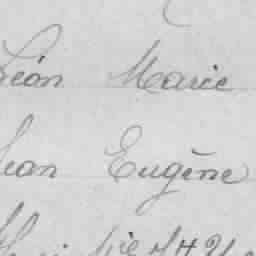 Léon Marie
Jean Eugène